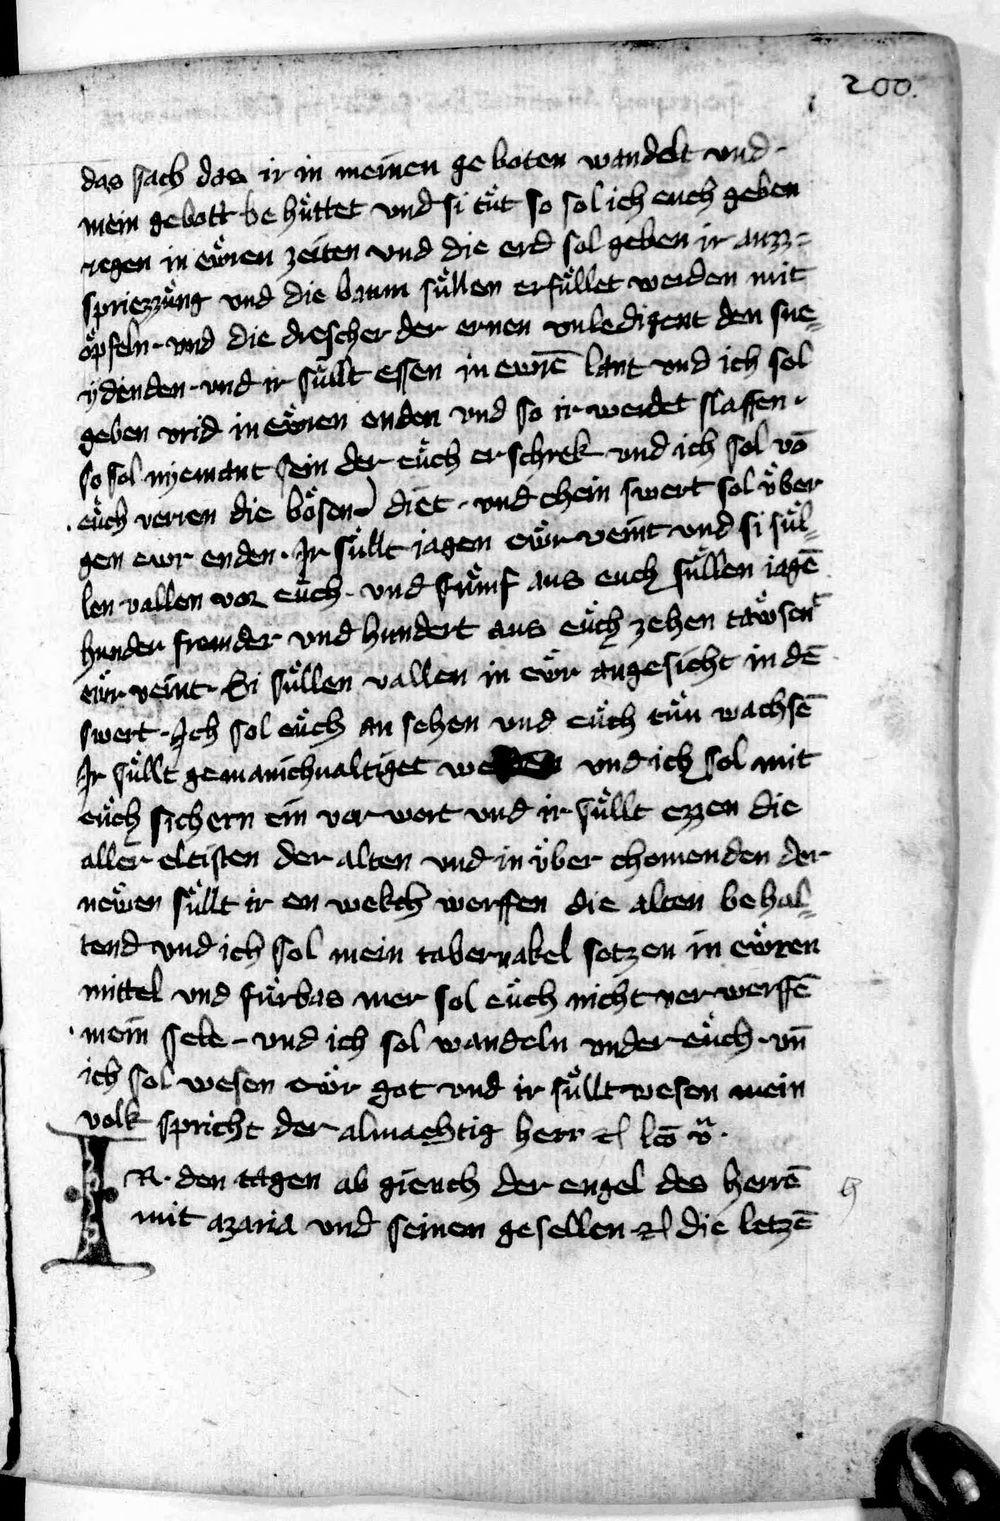 200.
das sach das ir in meinen ge boten wandelt vnd
mein gebott be hüttet vnd si tüt so sol ich euch geben
regen in ewren zeiten vnd die erd sol geben ir auzz=
spriezzüng vnd die baum süllen erfüllet werden mit
öpfeln · vnd die drescher der ernen vnledigent den sne=
ydenden · vnd ir süllt essen in ewrē lant vnd ich sol
geben vrid in ewren enden vnd so ir werdet slaffen ·
so sol nyemant sein der eüch er schrek vnd ich sol vō
eüch verren die bösen diet · vnd chein swert sol über
gen ewr enden · Ir süllt iagen ewr veint vnd si sül=
len vallen vor eüch · vnd fümf aus euch süllen iagē
hunder fromder vnd hundert aus eüch zehen tawsent
ewr veint · Si süllen vallen in ewr angesicht in dē
swert · Ich sol eüch an sehen vnd eüch tün wachsē
Ir süllt gemanichualtiget werden vnd ich sol mit
eüch sichern ein vor wort vnd ir süllt ezzen die
aller eltisten der alten vnd in über chomenden der
newen süllt ir en wekch werffen die alten be hal=
tend vnd ich sol mein tabernakel setzen in ewren
mittel vnd fürbas mer sol eüch nicht ver werffē
mein sele · vnd ich sol wandeln vnder eüch · vn̄
ich sol wesen ewr got vnd ir süllt wesen mein
volk spricht der almachtig herr ꝛc lcō
IR · den tagen ab gieuch der engel des herrē
mit azaria vnd seinem gesellen ꝛc die letzē